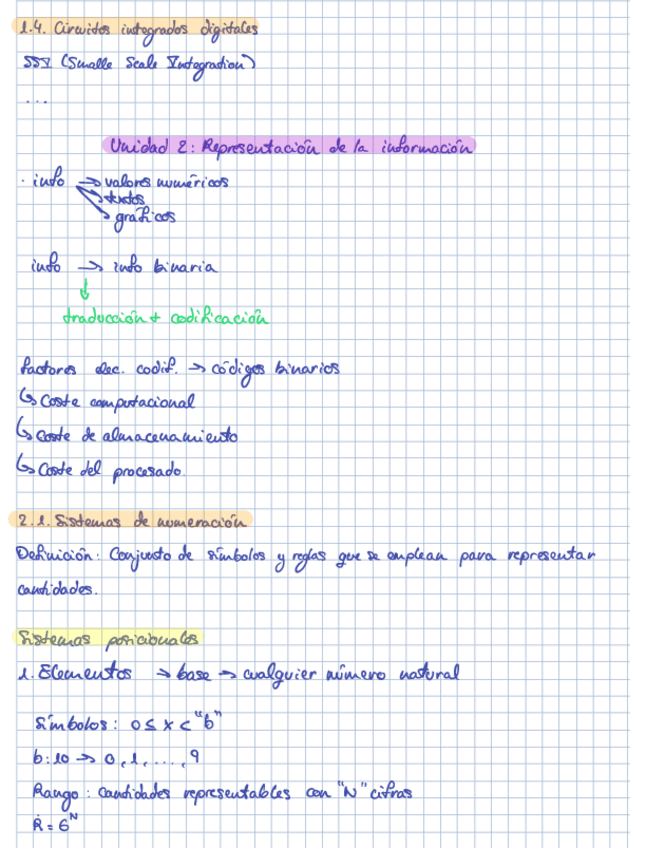 1.4. Circuitos integrados digitales
SSI (Smalle Scale Integration)
...
Unidad 2: Representación de la información
· info → valores numéricos
→ textos
→ gráficos
info → info binaria
↓
traducción + codificación
factores dec. codif. → códigos binarios
↳ Coste computacional
↳ Coste de almacenamiento
↳ Coste del procesado.
2.1. Sistemas de numeración
Definición: Conjunto de símbolos y reglas que se emplean para representar
cantidades.
Sistemas posicionales
1. Elementos → base → cualquier número natural
Símbolos: 0 ≤ x < "b"
b: 10 → 0, 1, ..., 9
Rango: Cantidades representables con "N" cifras
R = 6ᴺ